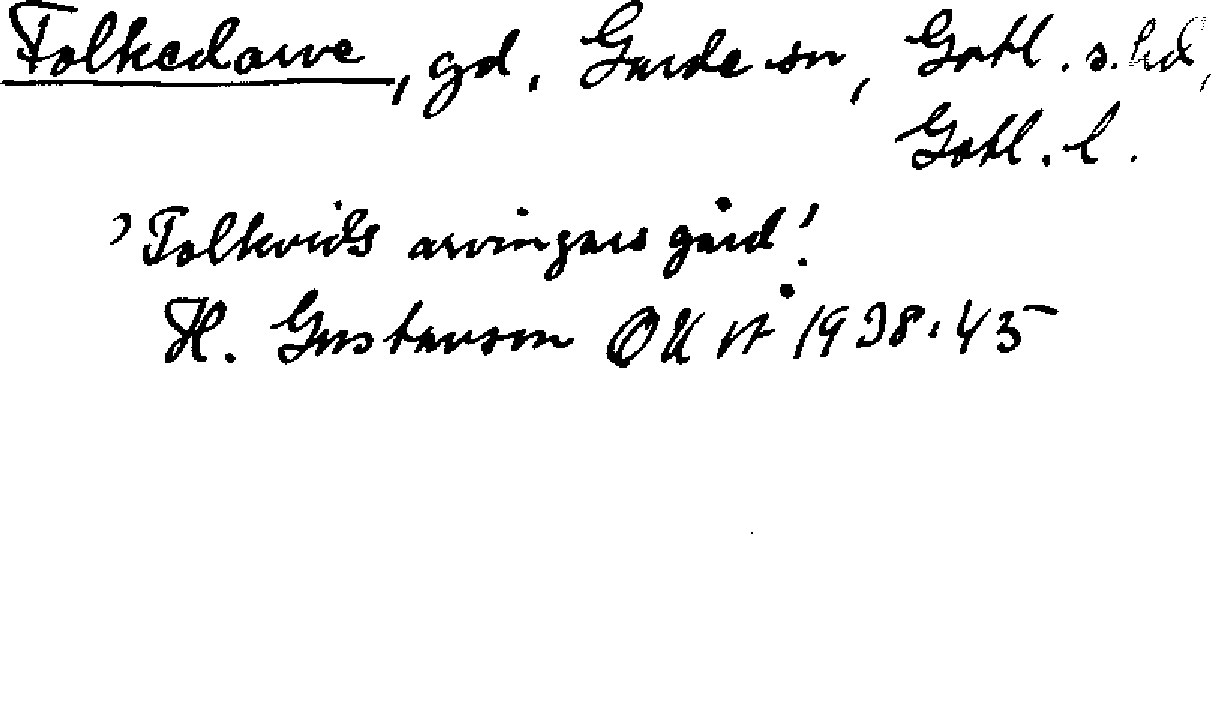 Folkedarve, gd, Garde sn, Gotl. s. hd,
Gotl. l.
'Folkvids arvingars gård'.
H. Gustavson OUÅ 1938:45